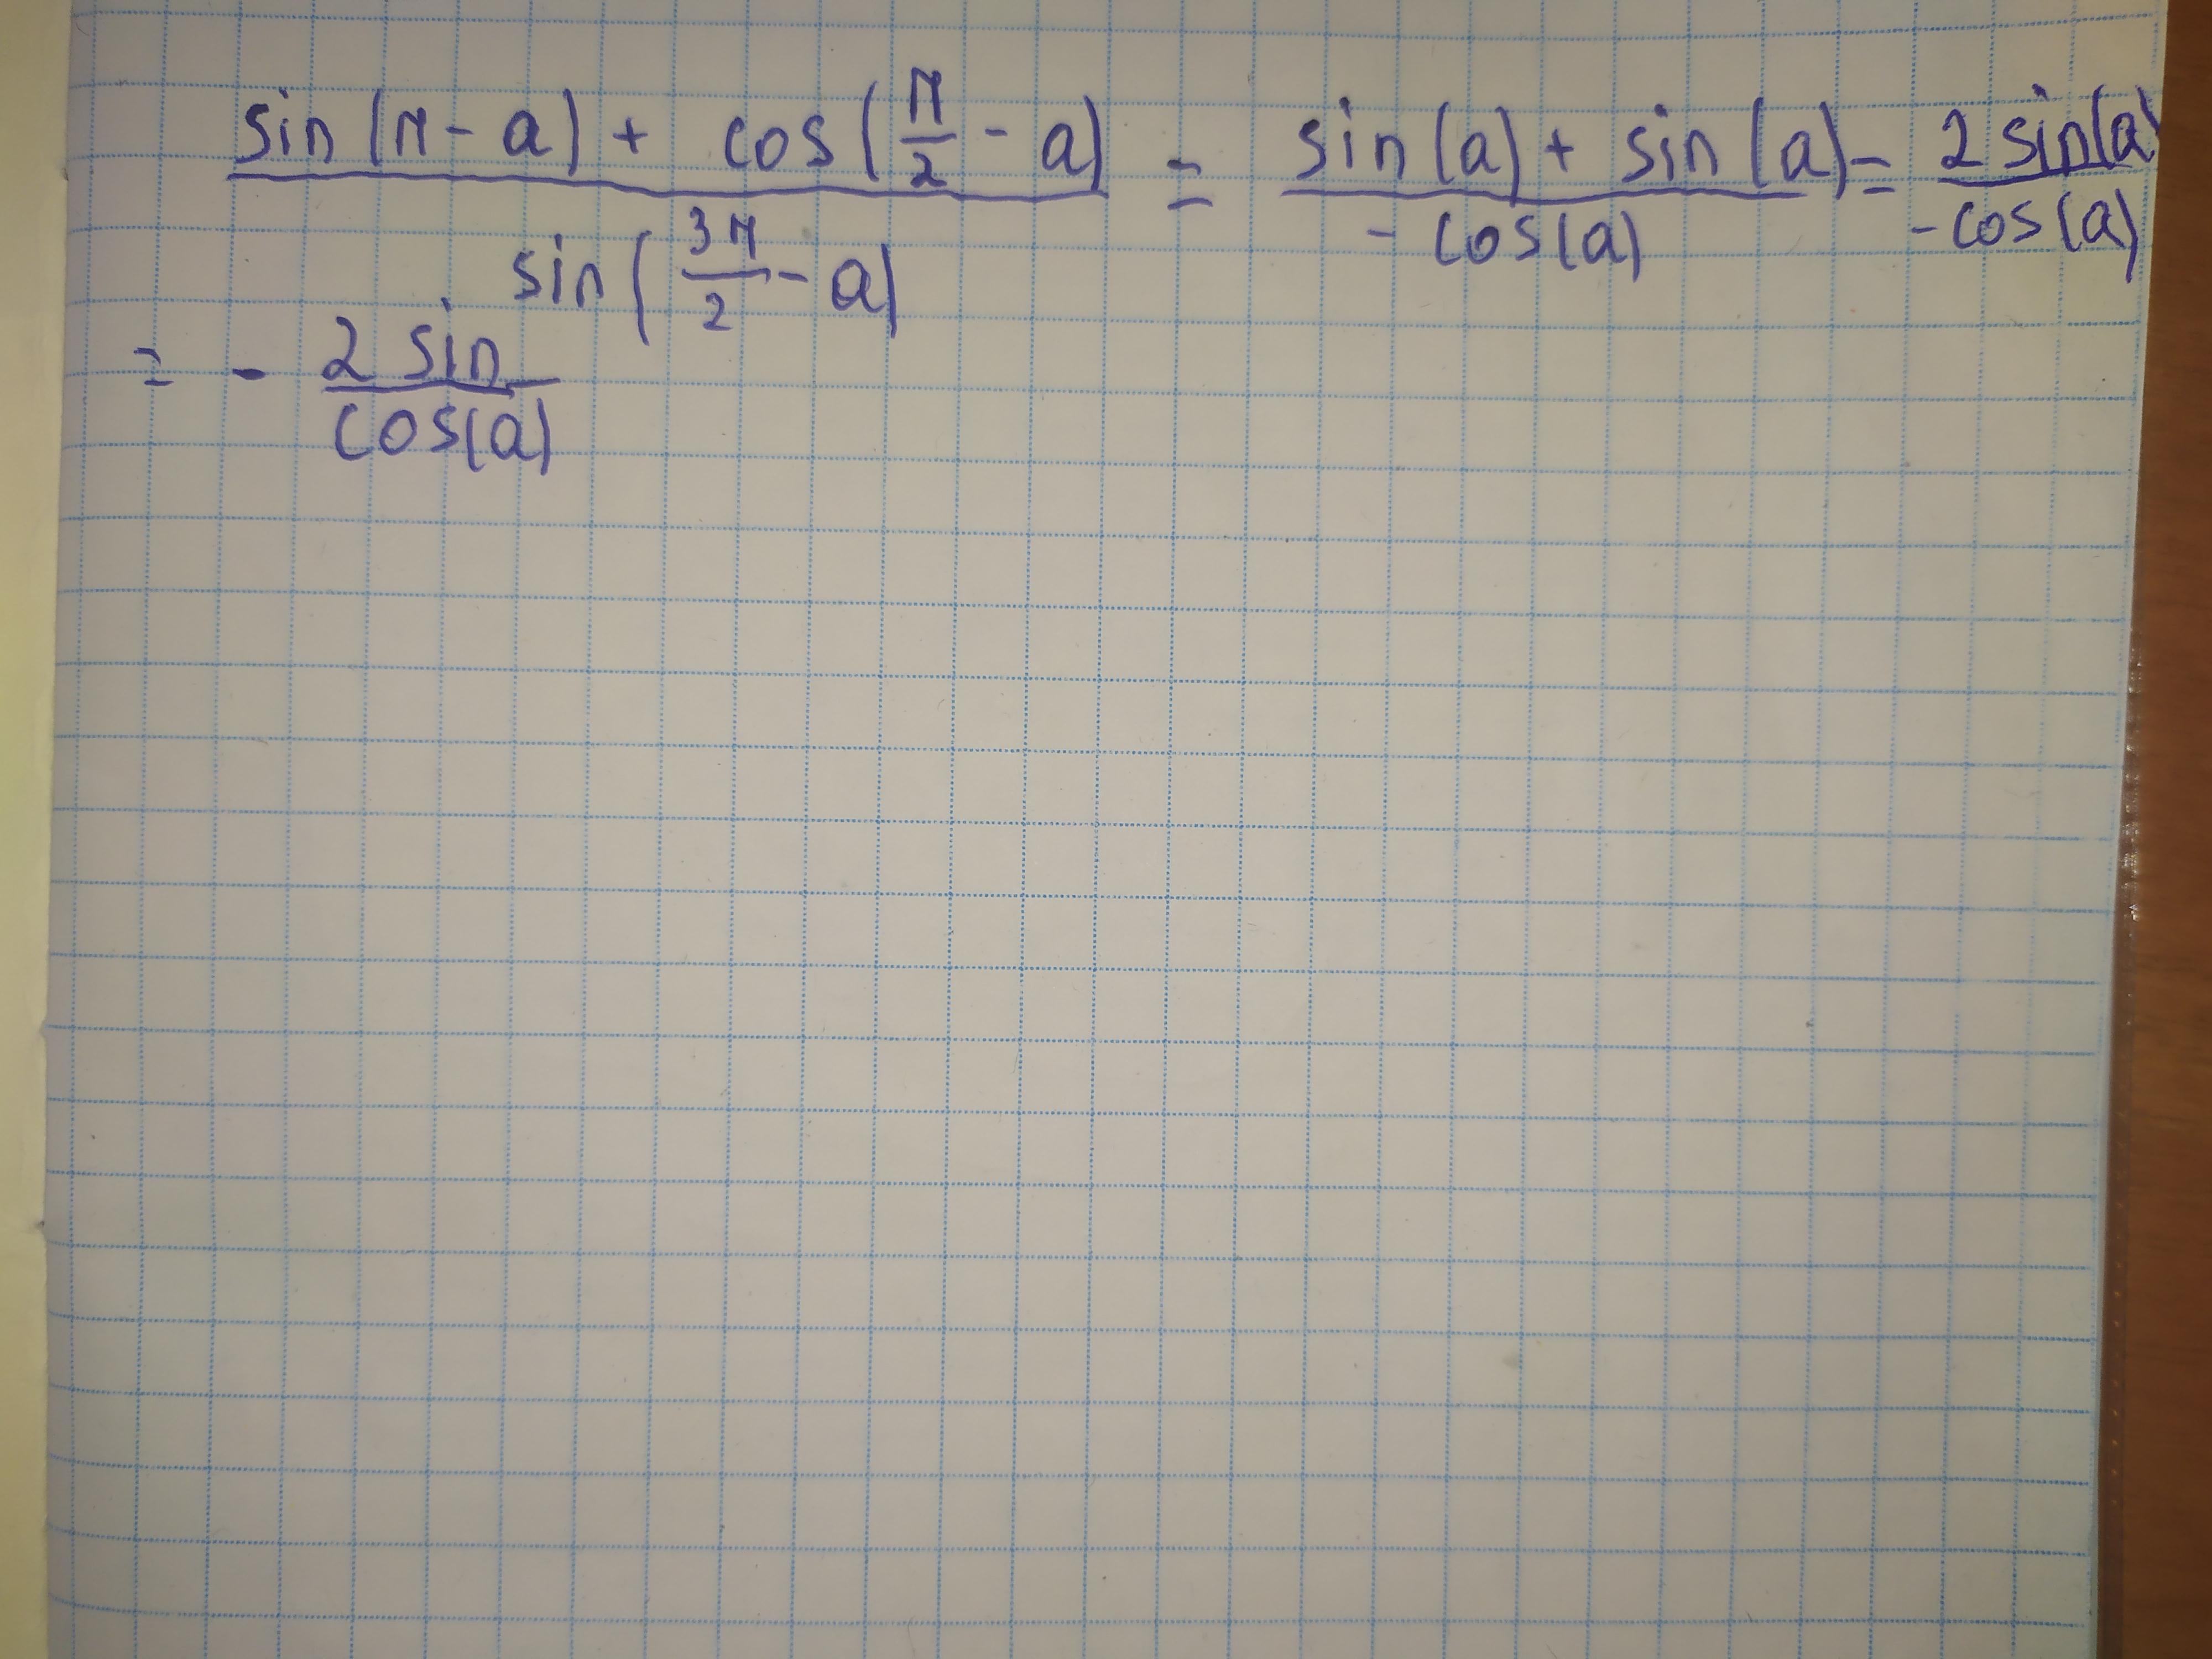 sin(π - a) + cos(π/2 - a) / sin(3π/2 - a) = sin(a) + sin(a) / - cos(a) = 2 sin(a) / - cos(a)
= - 2 sin / cos(a)